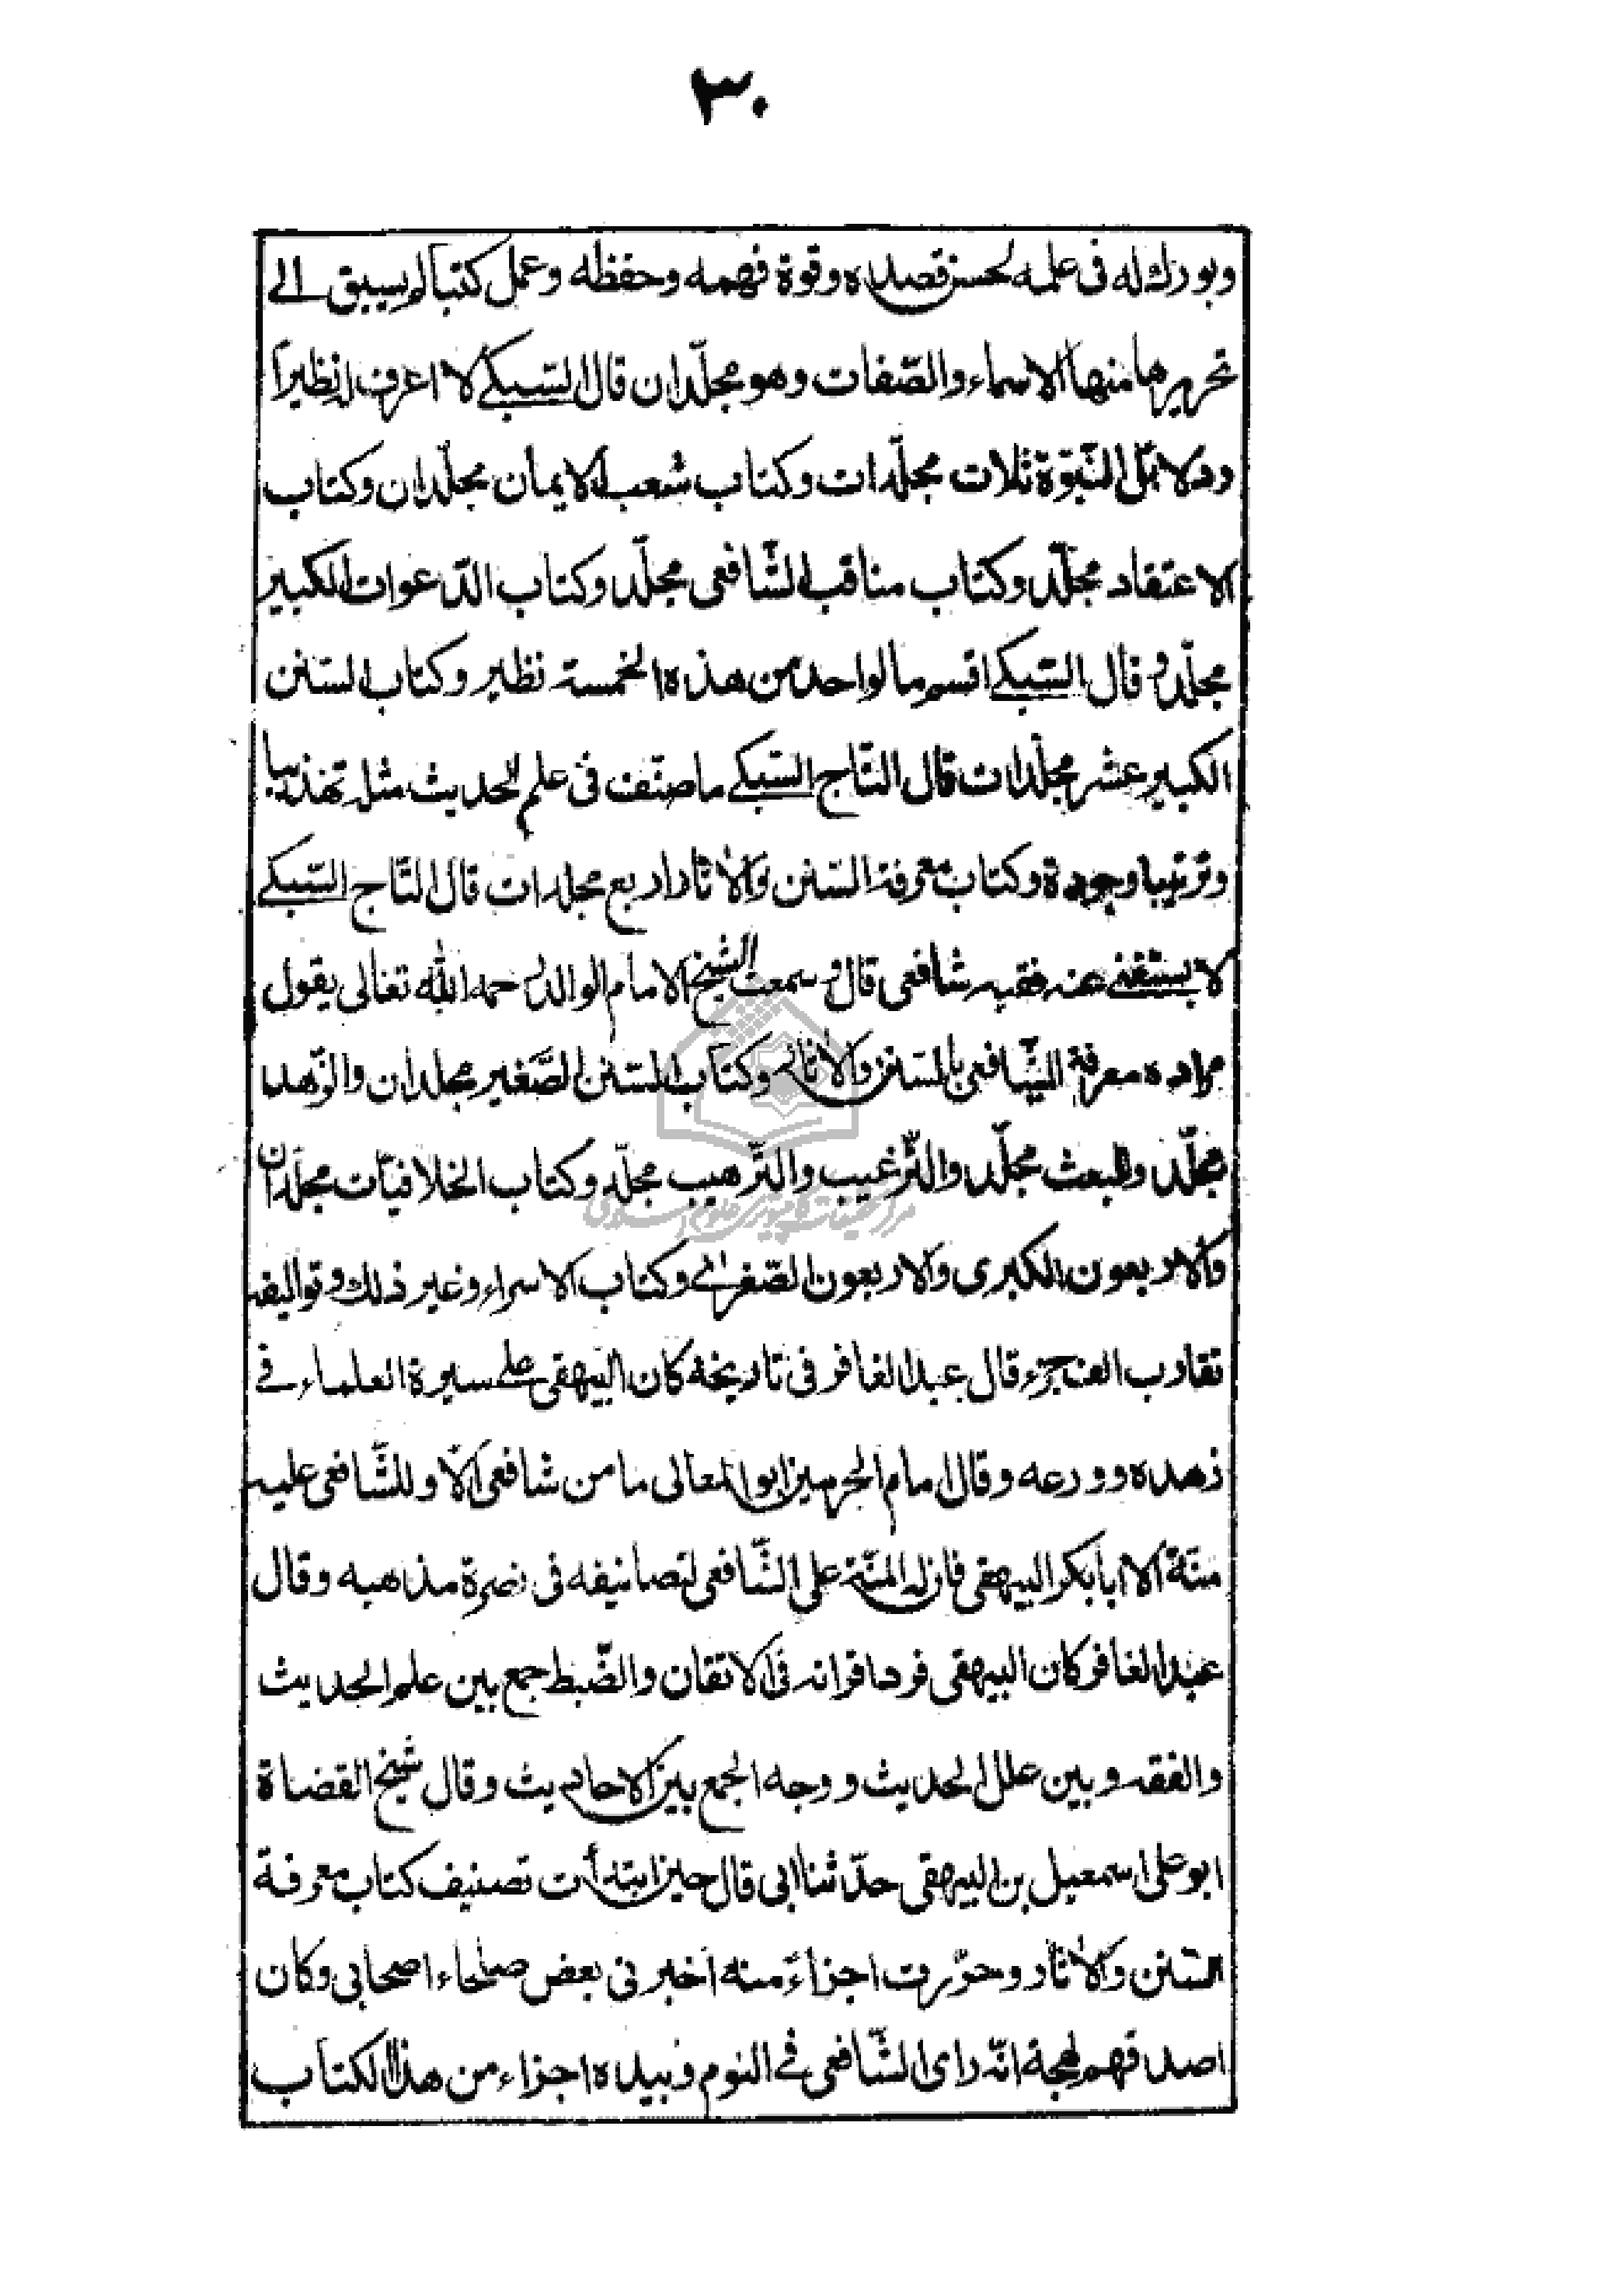 ٣٠
وبورك له فى علمه لحسن قصده وقوة فهمه وحفظه وعمل كتبا لم يسبق الى
تحريرها منها الاسماء والصّفات وهو مجلّدان قال السّبكى لا اعرف له نظيراً
ودلائل النّبوّة ثلات مجلّدات وكتاب شعب الايمان مجلّدان وكتاب
الاعتقاد مجلّد وكتاب مناقب الشّافعى مجلّد وكتاب الدّعوات الكبير
مجلّد وقال السّبكى اقسم ما لواحد من هذه الخمسة نظير وكتاب السّنن
الكبير عشر مجلّدات قال التّاج السّبكى ما صنّف فى علم الحديث مثله تهذيبا
وترتيبا وجودة وكتاب معرفة السّنن والاثار اربع مجلدات قال التّاج السّبكى
لا يستغنى عنه فقيه شافعى قال وسمعت الشيخ الامام الوالد رحمه الله تعالى يقول
مراده معرفة الشّافعى بالسّنن والاثار وكتاب السّنن الصّغير مجلدان والزّهد
مجلّد والبعث مجلّد والتّرغيب والتّرهيب مجلّد وكتاب الخلافيّات مجلّدان
والاربعون الكبرى والاربعون الصّغرى وكتاب الاسراء وغير ذلك وتواليفه
تقارب الف جزء قال عبد الغافر فى تاريخه كان البيهقى على سيرة العلماء فى
زهده وورعه وقال امام الحرمين ابو المعالى ما من شافعى الّا وللشّافعى عليه
منّة الا ابا بكر البيهقى فان له المنّة على الشّافعى لتصانيفه فى نصرة مذهبه وقال
عبد الغافر كان البيهقى فرد اقرانه فى الاتقان والضّبط جمع بين علم الحديث
والفقه وبين علل الحديث ووجه الجمع بين الاحاديث وقال شيخ القضاة
ابو على اسمعيل بن البيهقى حدّثنا ابى قال حين ابتدأت تصنيف كتاب معرفة
السّنن والاثار وحرّرت اجزاءً منه اخبرنى بعض صلحاء اصحابى وكان
اصدقهم لهجة انّه راى الشّافعى فى النوم وبيده اجزاء من هذا الكتاب
مرکز تحقیقات کامپیوتری علوم اسلامی